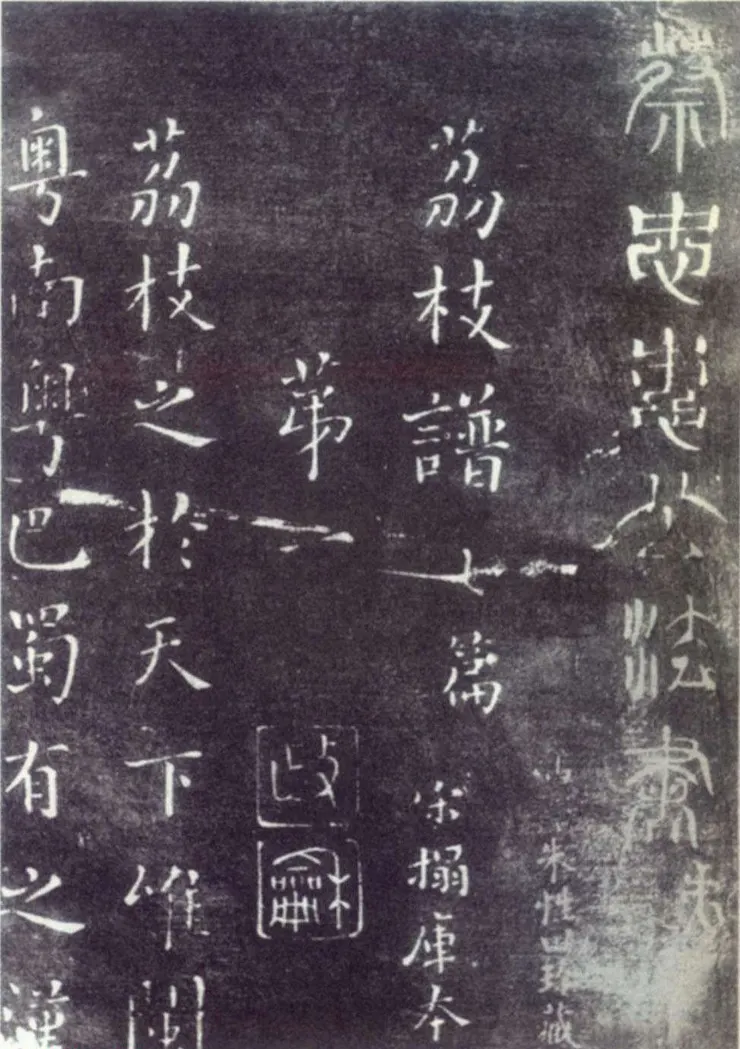 蔡忠惠公法書
朱性田珍藏
荔枝譜七篇 宋搨庫本
第一
荔枝之於天下唯閩
粵南粵巴蜀有之漢